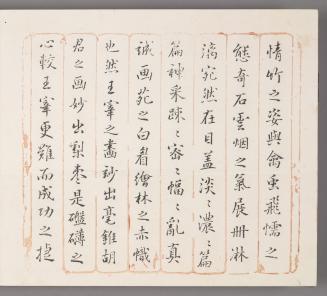 情竹之姿與禽虫飛懦之
態奇石雲烟之氣展冊淋
漓宛然在目蓋淡〻濃〻篇
篇神采疎〻密〻幅〻亂真
誠画苑之白眉繪林之赤幟
也然王宰之畵玅出毫錐胡
君之画妙出梨枣是礛礴之
心較王宰更難而成功之捷